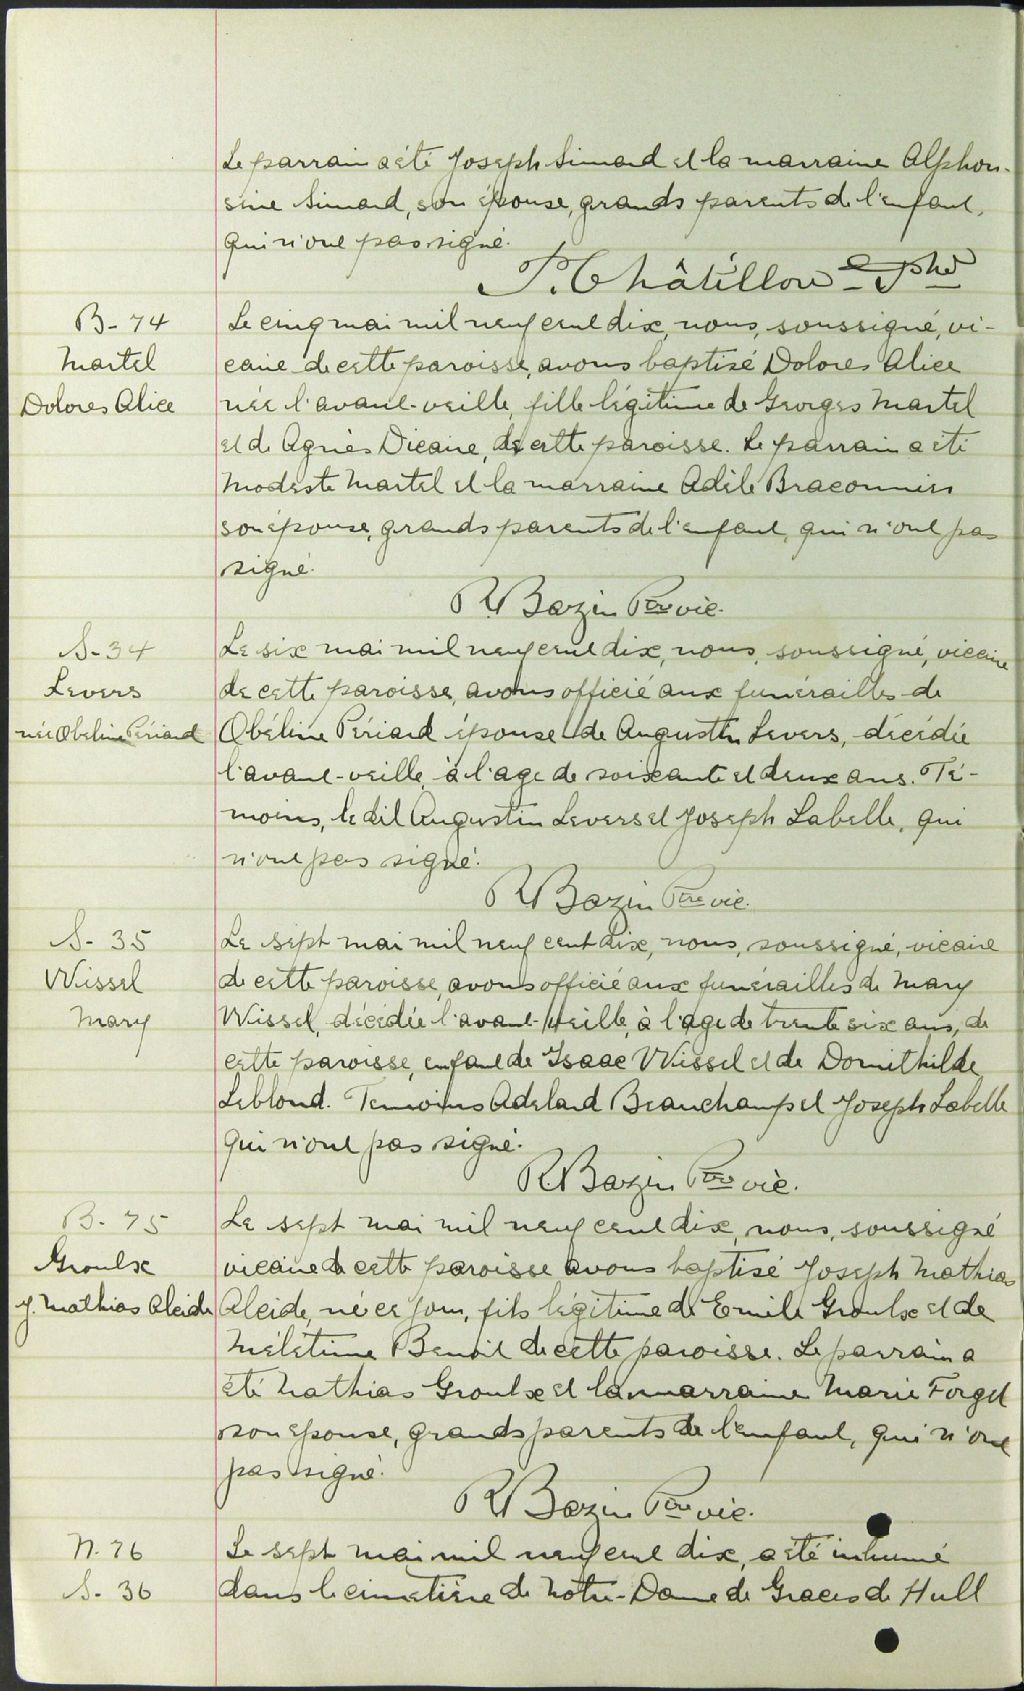 Le parrain a été Joseph Simard et la marraine Alphon-
sine Simard, son épouse, grands parents de l'enfant,
qui n'ont pas signé.
Châtillon
B-74
Martel
Dolores Alice
Le cinq mai mil neuf cent dix, nous, soussigné, vi-
caire de cette paroisse, avons baptisé Dolores Alice
née l'avant-veille, fille légitime de Georges Martel
et de Agnès Dicaire, de cette paroisse. Le parrain a été
Modeste Martel et la marraine Adèle Braconnier
son épouse, grands parents de l'enfant, qui n'ont pas
signé.
R Bazin Ptre vic.
S-34
Levers
née Obéline Périard
Le six mai mil neuf cent dix, nous, soussigné, vicaire
de cette paroisse, avons officié aux funérailles de
Obéline Périard épouse de Augustin Levers, décédée
l'avant-veille, à l'age de soixante et deux ans. Té-
moins, le dit Augustin Levers et Joseph Labelle, qui
n'ont pas signé.
R Bazin Ptre vic.
S-35
Wissel
Mary
Le sept mai mil neuf cent dix, nous, soussigné, vicaire
de cette paroisse, avons officié aux funérailles de Mary
Wissel, décédée l'avant-veille, à l'age de trente six ans, de
cette paroisse, enfant de Isaac Wissel et de Domithilde
Leblond. Temoins Adelard Beauchamp et Joseph Labelle
qui n'ont pas signé.
R Bazin Ptre vic.
B-75
Groulx
J. Mathias Alcide
Le sept mai mil neuf cent dix, nous, soussigné
vicaire de cette paroisse avons baptisé Joseph Mathias
Alcide, né ce jour, fils légitime de Emile Groulx et de
Mélétime Benoit de cette paroisse. Le parrain a
été Mathias Groulx et la marraine Marie Forget
son epouse, grands parents de l'enfant, qui n'ont
pas signé.
R Bazin Ptre vic.
N. 76
S-36
Le sept mai mil neuf cent dix, a été inhumé
dans le cimetière de Notre-Dame de Graces de Hull